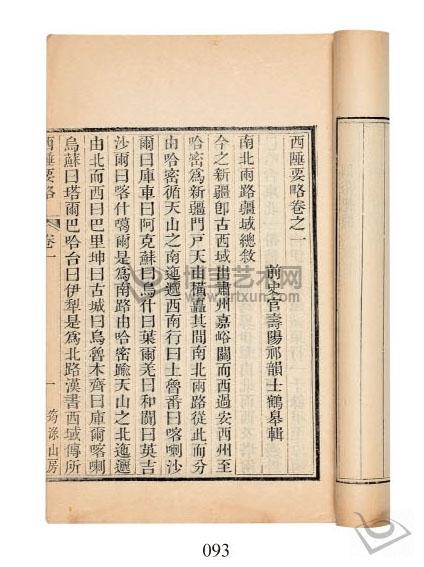 西陲要略卷之一
前史官壽陽祁韻士鶴皋輯
南北兩路疆域總敘
今之新疆卽古西域出肅州嘉峪關而西過安西州至
哈密爲新疆門戶天山橫矗其間南北兩路從此而分
由哈密循天山之南迤邐西南行曰土魯番曰喀喇沙
爾曰庫車曰阿克蘇曰烏什曰葉爾羌曰和闐曰英吉
沙爾曰喀什噶爾是爲南路由哈密踰天山之北迤邐
由北而西曰巴里坤曰古城曰烏魯木齊曰庫爾喀喇
烏蘇曰塔爾巴哈台曰伊犁是爲北路漢書西域傳所
西陲要略
卷一
一
筠淥山房
博宝艺术网
artxun.com
093